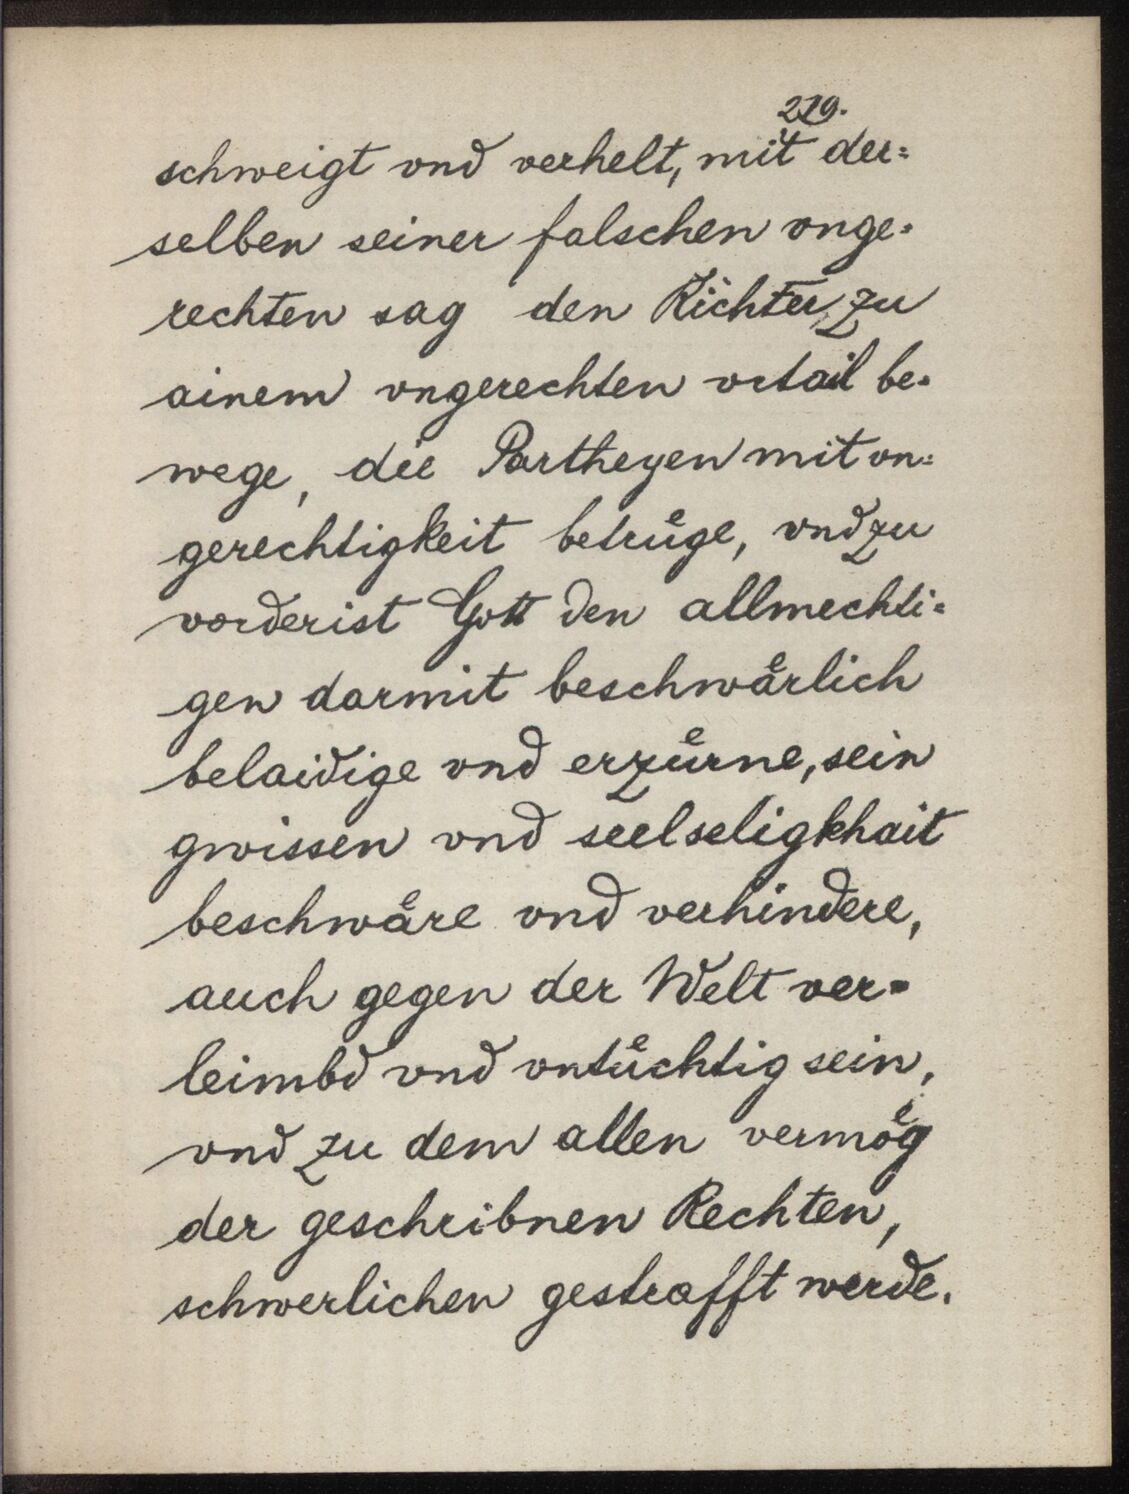 219.
schweigt vnd verhelt, mit der=
selben seiner falschen vnge=
rechten sag den Richter, zu
ainem vngerechten vrtail be=
wege, die Partheyen mit vn=
gerechtigkeit betruͤge, vnd zu
vorderist Gott den allmechti=
gen darmit beschwaͤrlich
belaidige vnd erzuͤrne, sein
gwissen vnd seelseligkhait
beschwaͤre vnd verhindere,
auch gegen der Welt ver=
leimbd vnd vntuͤchtig sein,
vnd zu dem allen vermoͤg
der geschribnen Rechten,
schwerlichen gestrafft werde.